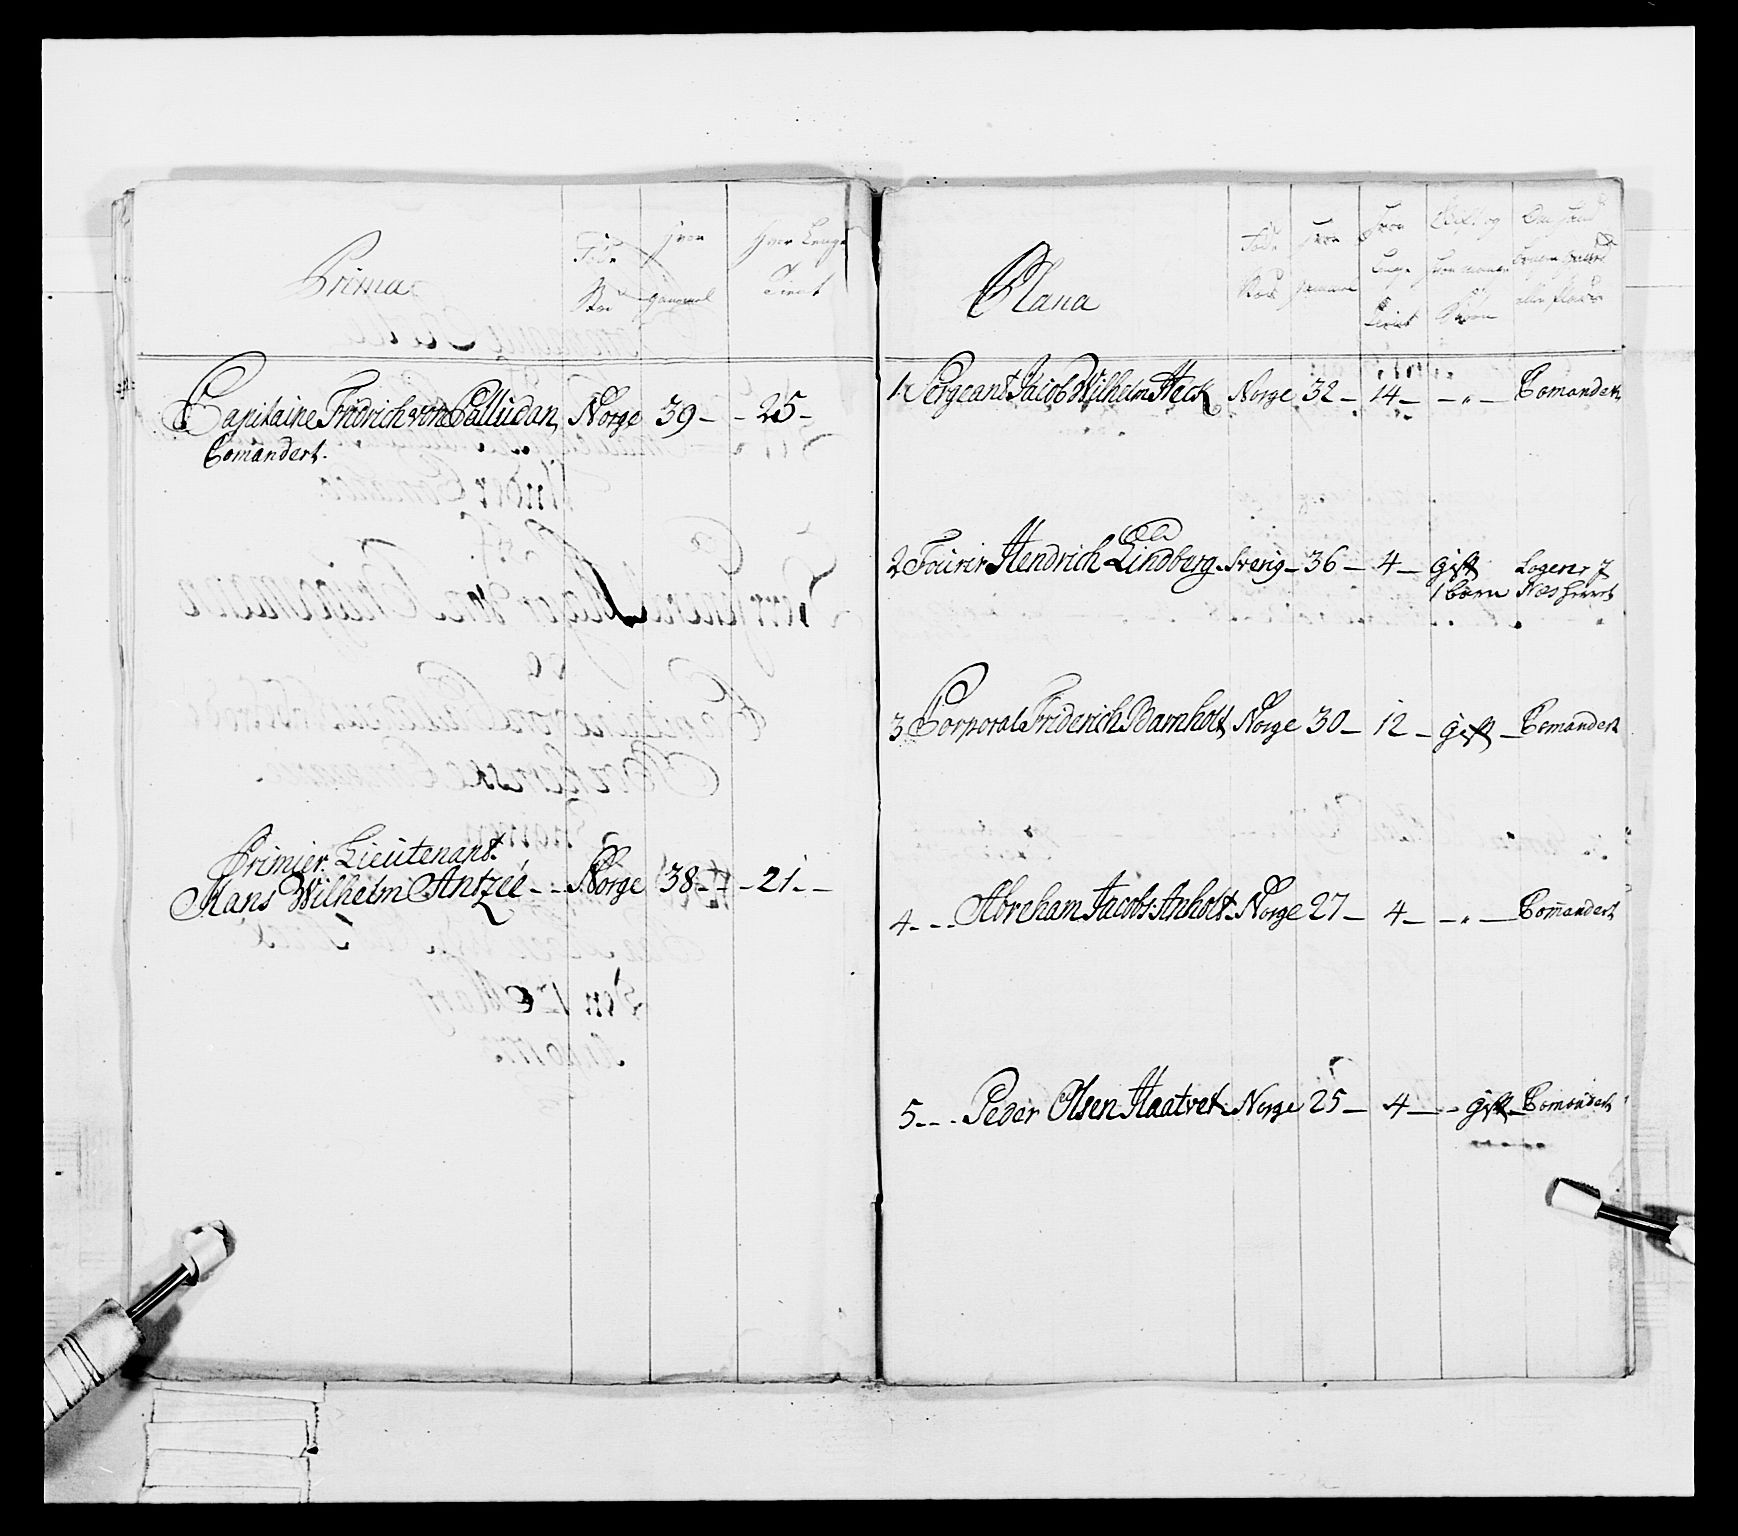 Prima
Føde Sted
Hvor gammel
Hvor Lenge Tient
Capitaine Fridrich von Palludan, Norge 39 - - 25 -
Comandert.
Primier Lieutenant.
Hans Wilhelm Antzeé - - Norge 38 - - 21 -
Plana
Føde Sted
Hvor gammel
Hvor Lenge Tient
Gift og hvor mange Børn
1 Sergeant Jacob Wilhelm Heck Norge 32 - 14 - - " - Comandert
2 Fourir Hendrich Lindberg - Sverig - 36 - 4 - gift Logerer J
1 barn Næs
3 Corporal Friderich Barnholt Norge 30 - 12 - gift - Comandert
4 - - - Abreham Jacobs: Anholt - Norge 27 - 4 - - " - Comandert
5 - - - Peder Olsen Haatvet - Norge 25 - 4 - - gift - Comandert